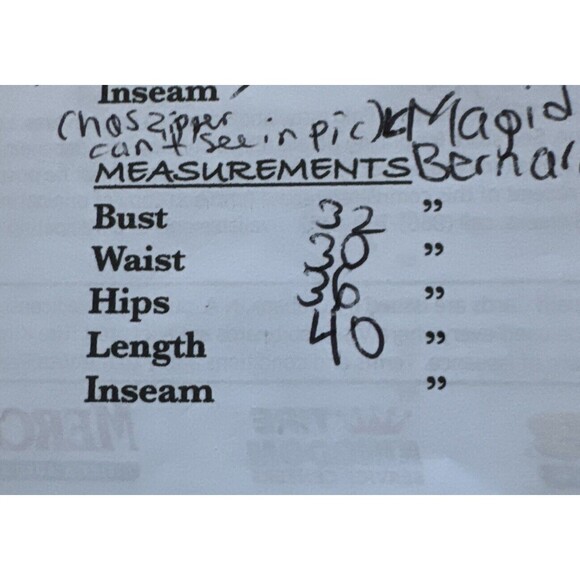 Inseam
(has zipper Magid
can't see in pic)
MEASUREMENTS
Bust 32 ”
Waist 30 ”
Hips 36 ”
Length 40 ”
Inseam ”